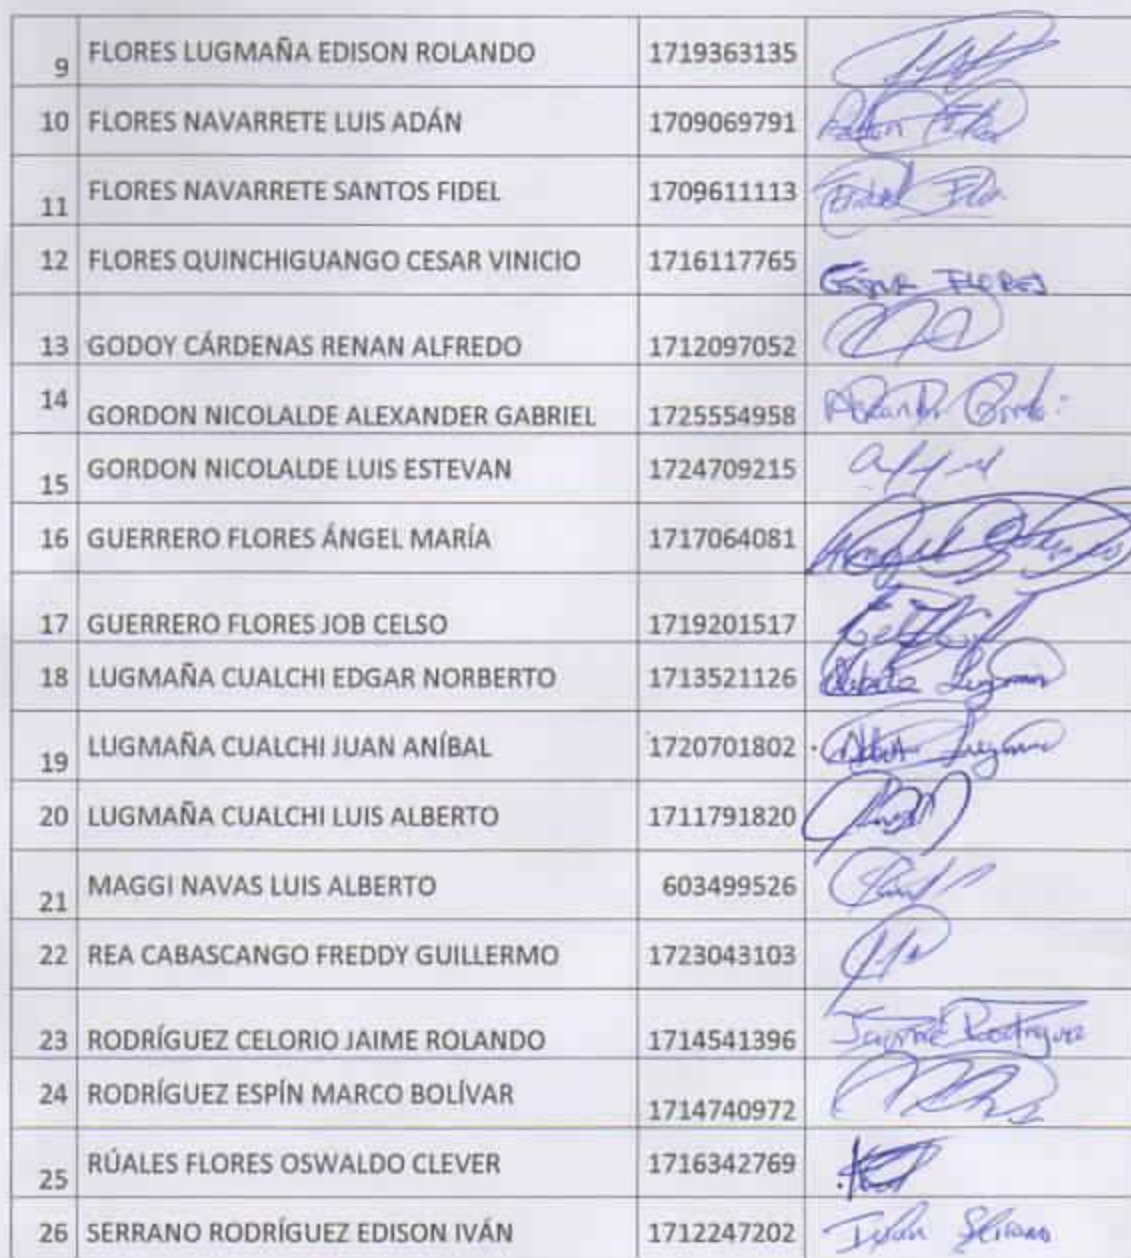 9 FLORES LUGMAÑA EDISON ROLANDO 1719363135
10 FLORES NAVARRETE LUIS ADÁN 1709069791
11 FLORES NAVARRETE SANTOS FIDEL 1709611113 Fidel Flor
12 FLORES QUINCHIGUANGO CESAR VINICIO 1716117765 CESAR FLORES
13 GODOY CÁRDENAS RENAN ALFREDO 1712097052
14 GORDON NICOLALDE ALEXANDER GABRIEL 1725554958
15 GORDON NICOLALDE LUIS ESTEVAN 1724709215
16 GUERRERO FLORES ÁNGEL MARÍA 1717064081
17 GUERRERO FLORES JOB CELSO 1719201517
18 LUGMAÑA CUALCHI EDGAR NORBERTO 1713521126
19 LUGMAÑA CUALCHI JUAN ANÍBAL 1720701802
20 LUGMAÑA CUALCHI LUIS ALBERTO 1711791820
21 MAGGI NAVAS LUIS ALBERTO 603499526
22 REA CABASCANGO FREDDY GUILLERMO 1723043103
23 RODRÍGUEZ CELORIO JAIME ROLANDO 1714541396 Jayme Rodriguez
24 RODRÍGUEZ ESPÍN MARCO BOLÍVAR 1714740972
25 RÚALES FLORES OSWALDO CLEVER 1716342769
26 SERRANO RODRÍGUEZ EDISON IVÁN 1712247202 Iván Serrano